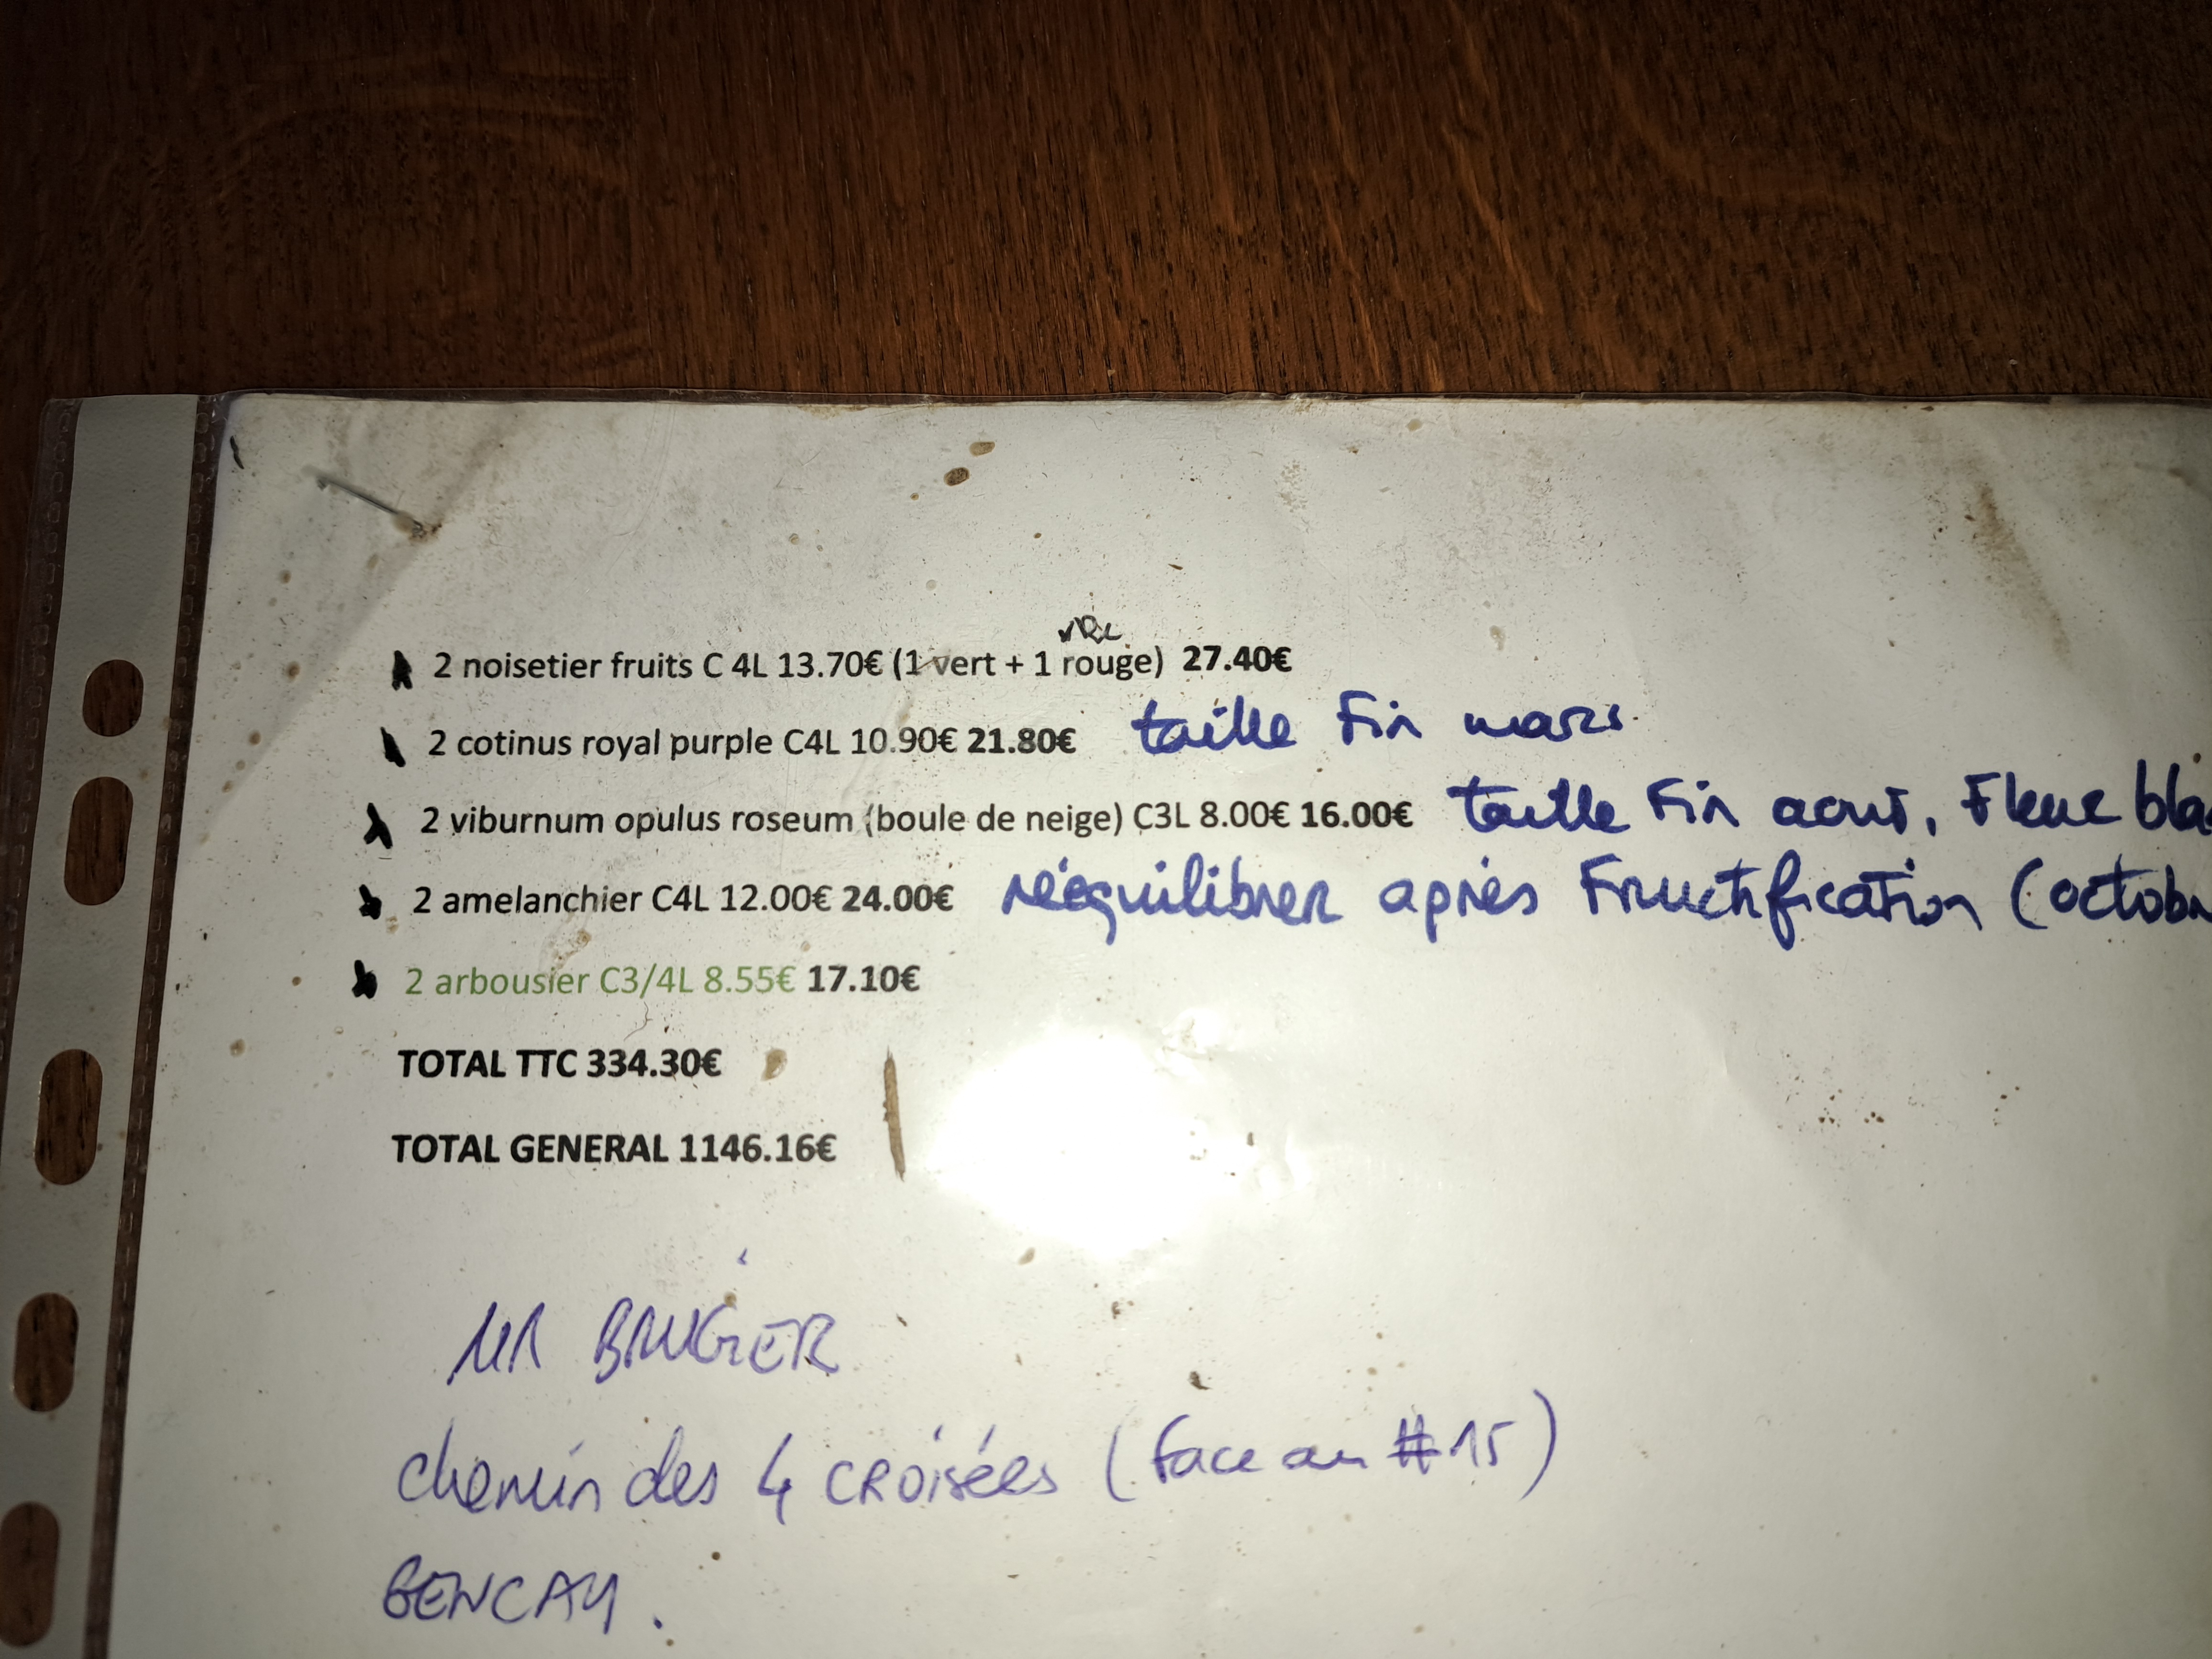 2 noisetier fruits C 4L 13.70€ (1 vert + 1 rouge) 27.40€
2 cotinus royal purple C4L 10.90€ 21.80€ taille fin mars.
2 viburnum opulus roseum (boule de neige) C3L 8.00€ 16.00€ taille fin aout, Fleur bla
2 amelanchier C4L 12.00€ 24.00€ rééquilibrer après Fructification (octobr
2 arbousier C3/4L 8.55€ 17.10€
TOTAL TTC 334.30€
TOTAL GENERAL 1146.16€
MR BRUGIER
chemin des 4 CROISÉES (face au #15)
GENCAY.